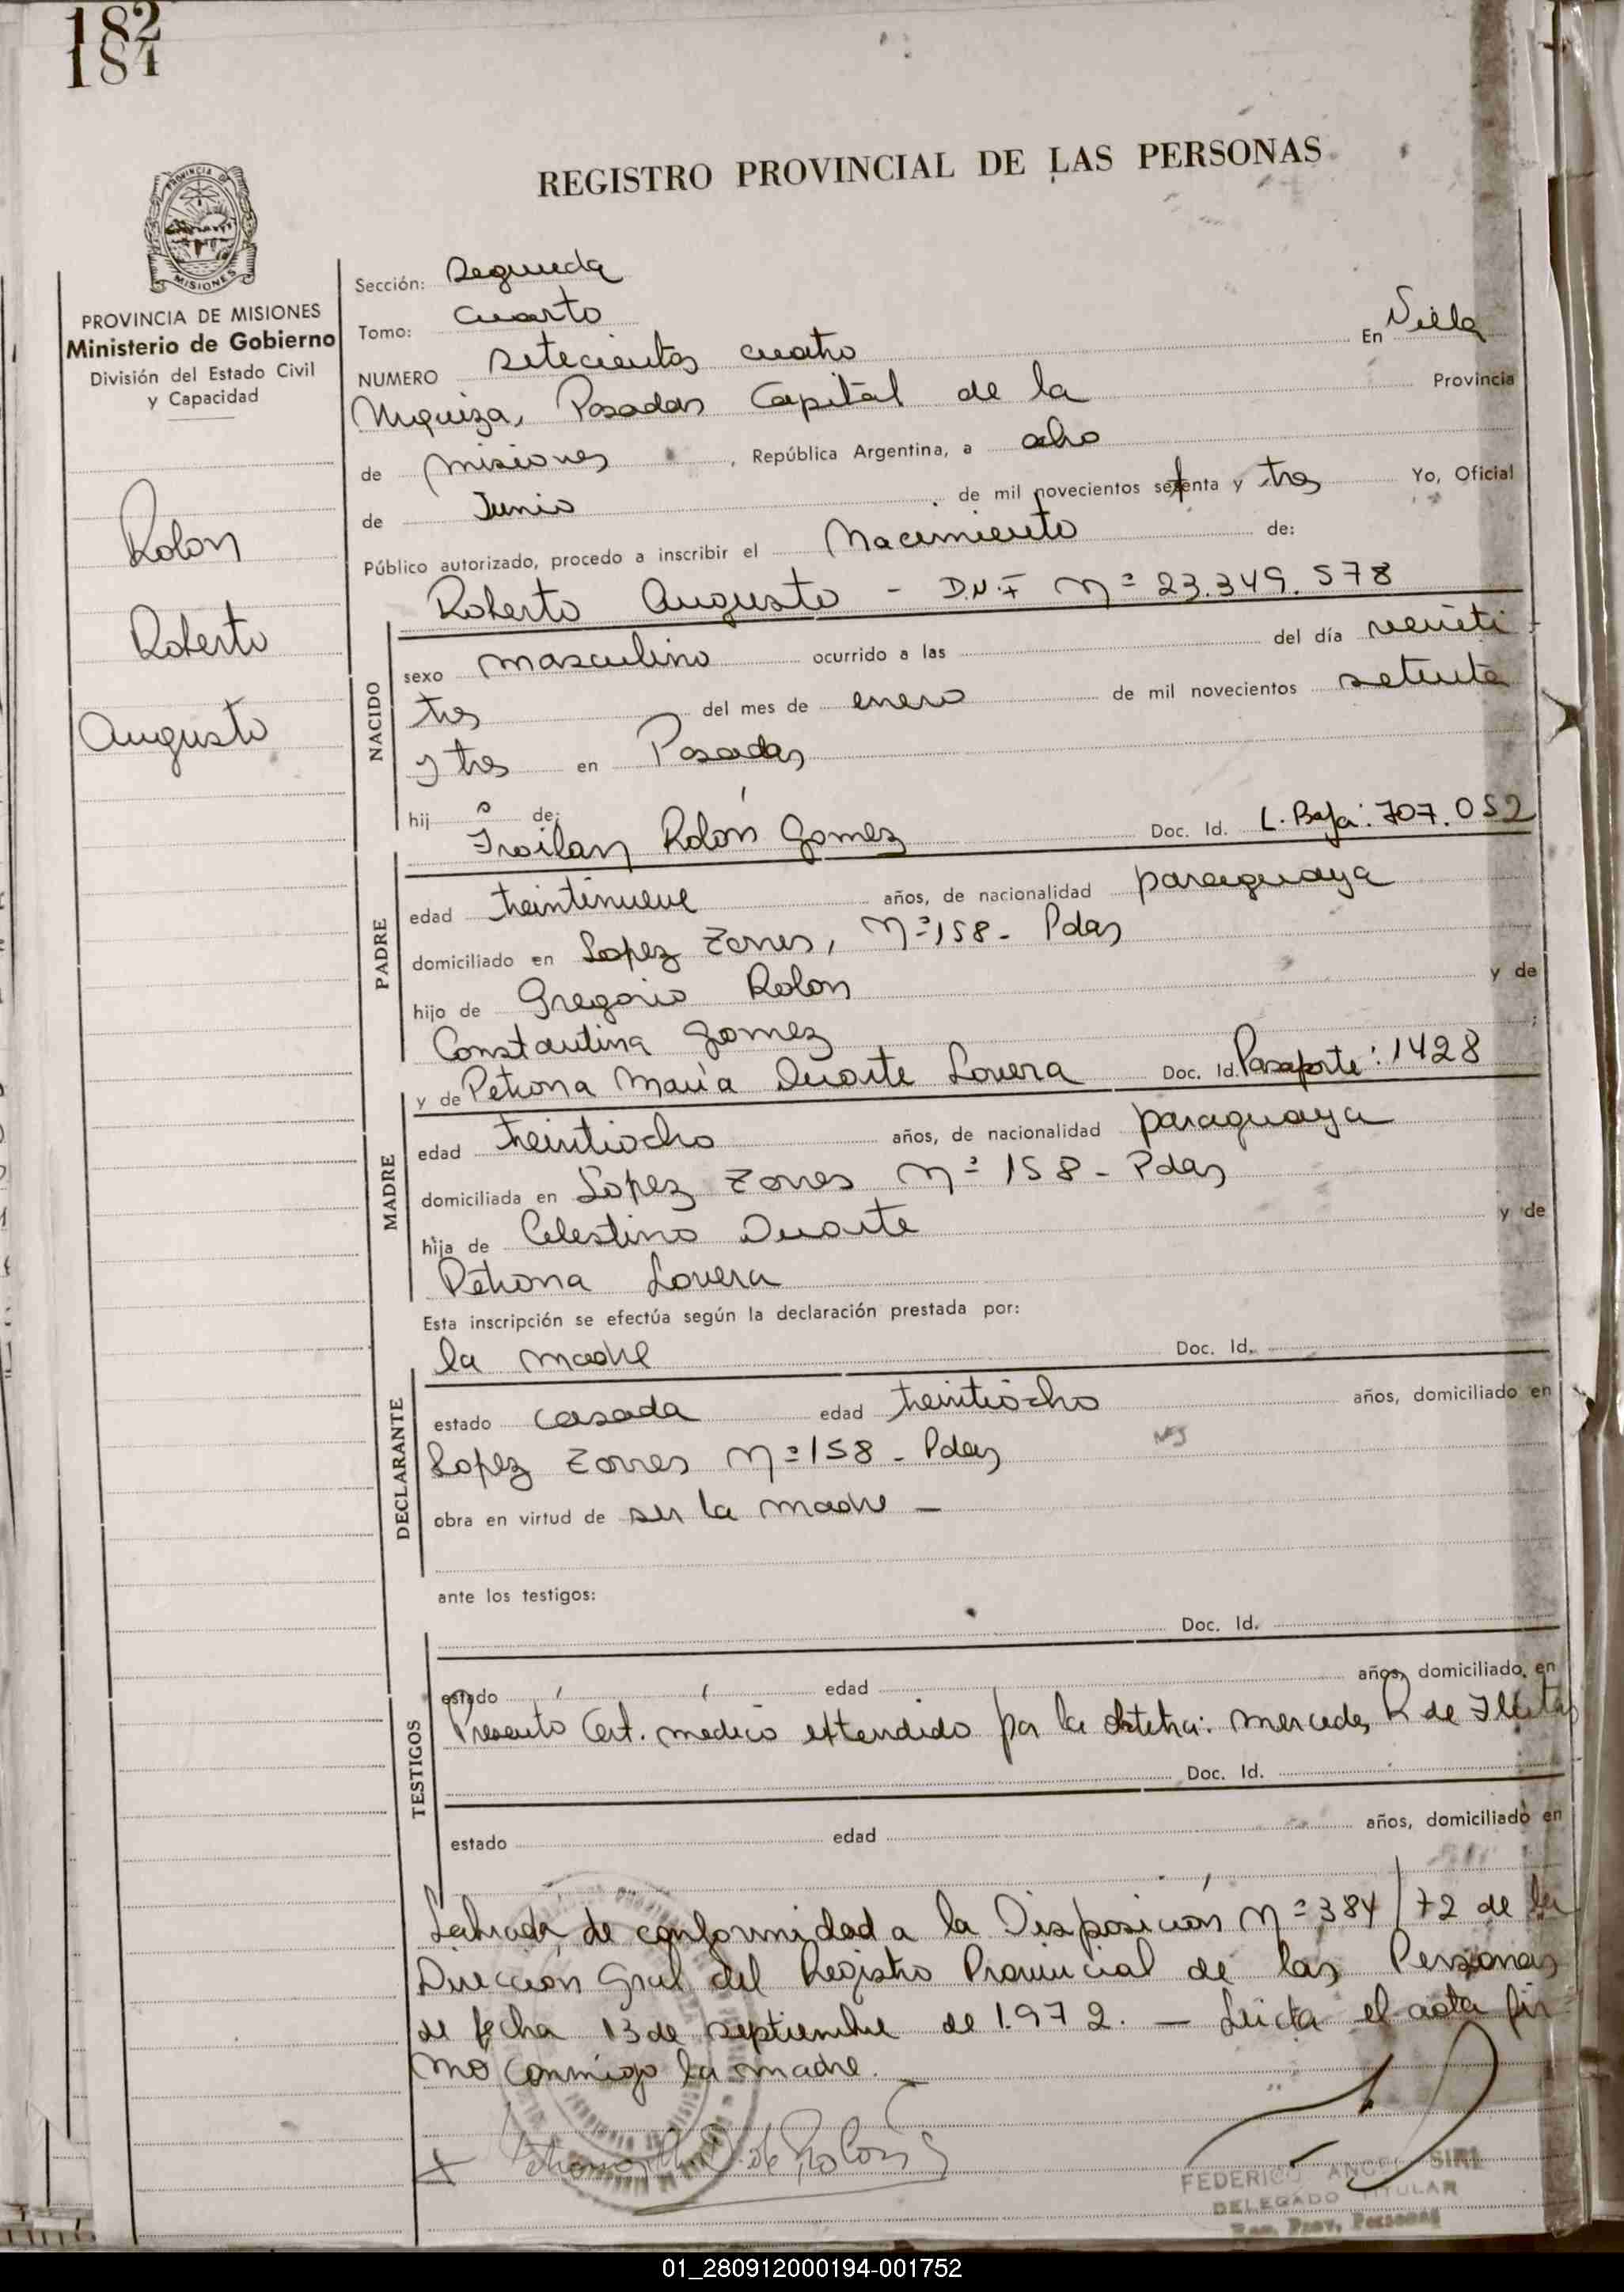 182
184
REGISTRO PROVINCIAL DE LAS PERSONAS
PROVINCIA DE MISIONES
PROVINCIA DE MISIONES
Ministerio de Gobierno
División del Estado Civil
y Capacidad
Rolon
Roberto
Augusto
Sección: Segunda
Tomo: Cuarto
NUMERO setecientos cuatro En Villa
Urquiza, Posadas Capital de la Provincia
de Misiones, República Argentina, a ocho
de Junio de mil novecientos setenta y tres Yo, Oficial
Público autorizado, procedo a inscribir el Nacimiento de:
Roberto Augusto - D.N.I Nº 23.349.578
NACIDO
sexo masculino ocurrido a las del día veinti
tres del mes de enero de mil novecientos setenta
y tres en Posadas
hijo de:
Froilan Rolón Gomez Doc. Id. L. Baja: 707.052
PADRE
edad treintinueve años, de nacionalidad paraguaya
domiciliado en Lopez Torres, Nº 158 - Pdas
hijo de Gregorio Rolon y de
Constantina Gomez;
y de Petrona María Duarte Lovera Doc. Id. Pasaporte: 1428
MADRE
edad treintiocho años, de nacionalidad paraguaya
domiciliada en Lopez Torres Nº 158 - Pdas
hija de Celestino Duarte y de
Petrona Lovera
Esta inscripción se efectúa según la declaración prestada por:
la madre Doc. Id.
DECLARANTE
estado casada edad treintiocho años, domiciliado en
Lopez Torres Nº 158 - Pdas
obra en virtud de ser la madre —
ante los testigos:
Doc. Id.
TESTIGOS
estado edad años, domiciliado en
Presentó Cert. medico extendido por la obstetra: Mercedes R de
Doc. Id.
estado edad años, domiciliado en
Labrada de conformidad a la Disposición Nº 384/72 de la
Dirección Gral del Registro Provincial de las Personas
de fecha 13 de septiembre de 1.972. — Leida el acta fir
mó conmigo la madre.
Petrona de Rolón
FEDERICO ANGEL SIRI
DELEGADO TITULAR
Reg. Prov. Personas
01_280912000194-001752